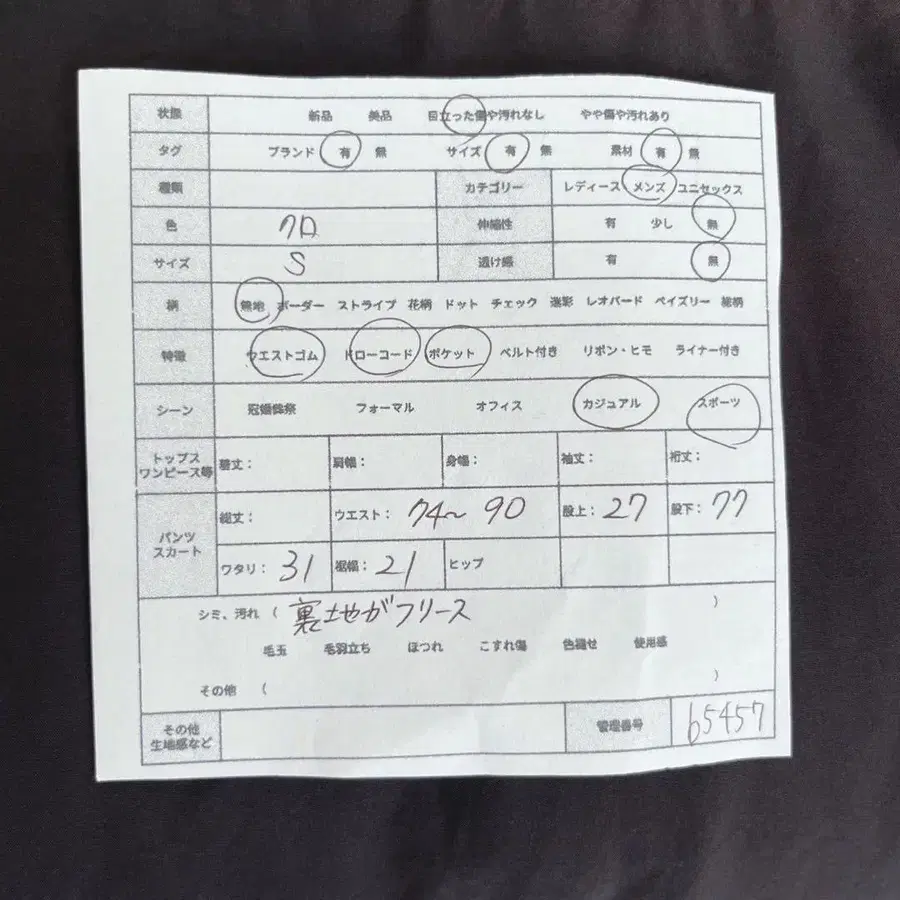 状態 新品 美品 目立った傷や汚れなし やや傷や汚れあり
タグ ブランド 有 無 サイズ 有 無 素材 有 無
種類 カテゴリー レディース メンズ ユニセックス
色 クロ 伸縮性 有 少し 無
サイズ S 透け感 有 無
柄 無地 ボーダー ストライプ 花柄 ドット チェック 迷彩 レオパード ペイズリー 総柄
特徴 ウエストゴム ドローコード ポケット ベルト付き リボン・ヒモ ライナー付き
シーン 冠婚葬祭 フォーマル オフィス カジュアル スポーツ
トップス
ワンピース等 着丈： 肩幅： 身幅： 袖丈： 裄丈：
パンツ
スカート
総丈： ウエスト： 74～90 股上： 27 股下： 77
ワタリ： 31 裾幅： 21 ヒップ
シミ、汚れ （ 裏地がフリース ）
毛玉 毛羽立ち ほつれ こすれ傷 色褪せ 使用感
その他 （ ）
その他
生地感など 管理番号 b5457